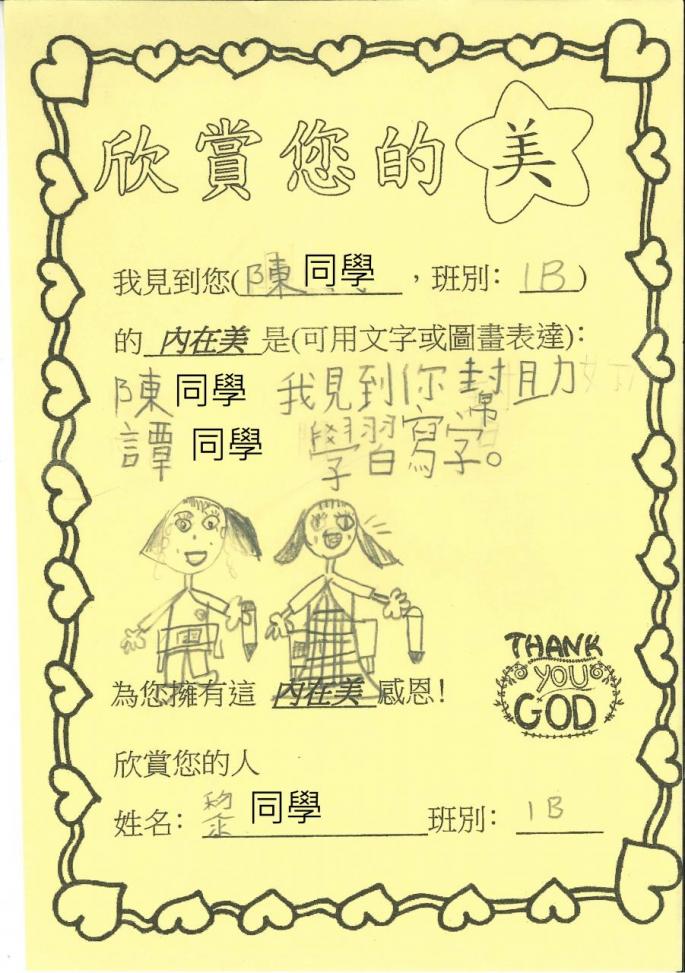 欣賞您的美
我見到您(陳同學，班別：1B)
的 內在美 是(可用文字或圖畫表達)：
陳同學 我見到你幫助
譚同學 學習寫字。
為您擁有這 內在美 感恩！
THANK
YOU
GOD
欣賞您的人
姓名：黎同學 班別：1B